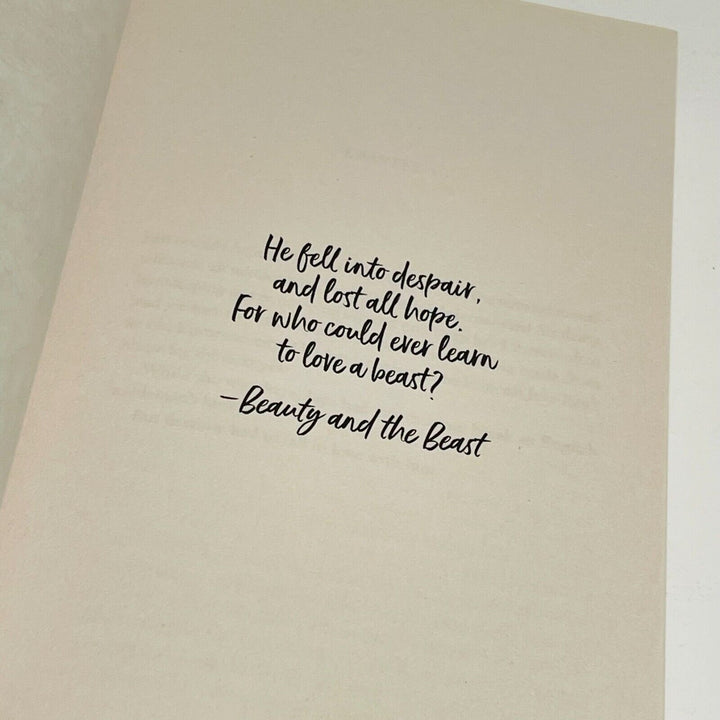 He fell into despair,
and lost all hope.
For who could ever learn
to love a beast?
—Beauty and the Beast